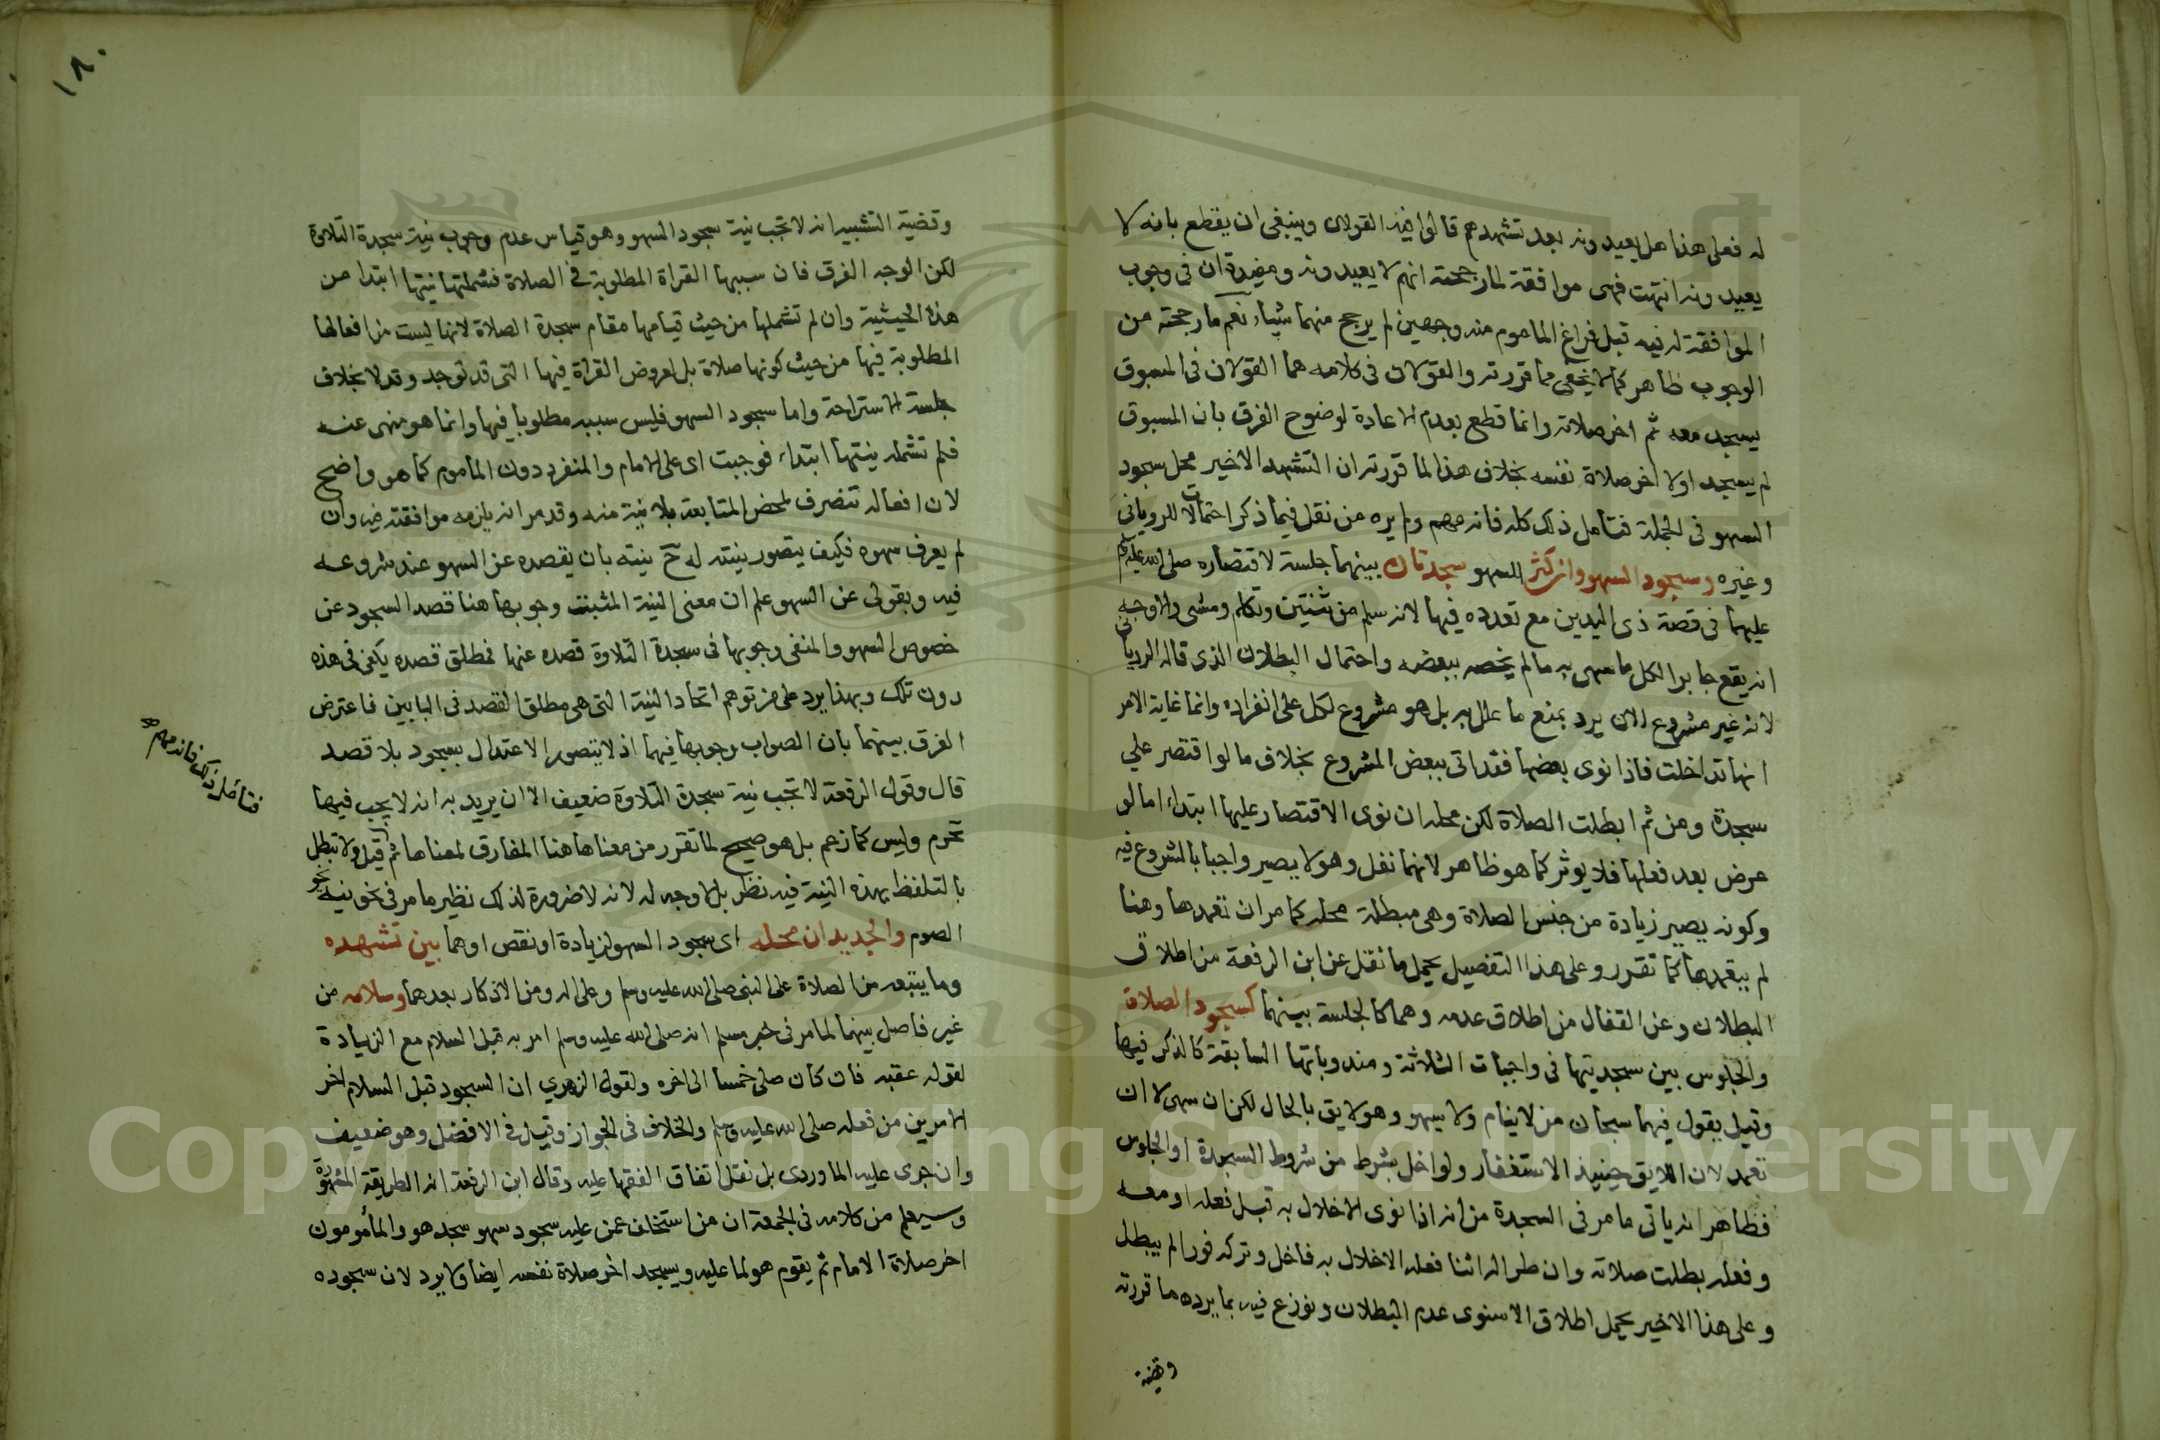 له فعلى هذا هل يعيدونه بعد تشهدهم قالوا فيه القولان وينبغي ان يقطع بانه لا
يعيدونه انتهت فهي موافقة لما رجحته انهم لا يعيدونه ومفيدة ان في وجوب
الموافقة له فيه قبل فراغ الماموم منه وجهين لم يرجح منهما شياء نعم ما رجحته من
الوجوب ظاهر كما لا يخفى مما قررته والقولان في كلامه هما القولان في المسبوق
يسجد معه ثم اخر صلاته وانما قطع بعدم الاعادة لوضوح الفرق بان المسبوق
لم يسجد اولا اخر صلاة نفسه بخلاف هذا لما قررته ان التشهد الاخير محل سجود
السهو في الجملة فتامل ذلك كله فانه مهم ولم يره من نقل فيما ذكر احتمالات للروياني
وغيره وسجود السهو وان كثر السهو سجدتان بينهما جلسة لاقتصاره صلى الله عليه وسلم
عليهما في قصة ذي اليدين مع تعدده فيها لانه سلم من ثنتين وتكلم ومشى والاوجه
انه يقع جابرا لكل ما سهى به ما لم يخصه ببعضه واحتمال البطلان الذي قاله الروياني
لانه غير مشروع الان يرد بمنع ما علل به بل هو مشروع لكل على انفراده وانما غاية الامر
انها تداخلت فاذا نوى بعضها فقد اتى ببعض المشروع بخلاف ما لو اقتصر على
سجدة ومن ثم ابطلت الصلاة لكن محله ان نوى الاقتصار عليها ابتداء اما لو
عرض بعد فعلها فلا يوثر كما هو ظاهر لانهما نفل وهو لا يصير واجبا بالشروع فيه
وكونه يصير زيادة من جنس الصلاة وهي مبطلة محله كما مر ان تعمدها وهنا
لم يتعمدها كما تقرر وعلى هذا التفصيل يحمل ما نقل عن ابن الرفعة من اطلاق
البطلان وعن القفال من اطلاق عدمه وهما كالجلسة بينهما كسجود الصلاة
والجلوس بين سجدتيها في واجبات الثلاثة ومندوباتها السابقة كالذكر فيها
وقيل يقول فيهما سبحان من لا ينام ولا يسهو وهو لايق بالحال لكن ان سهى لا ان
تعمد لان اللايق حينيذ الاستغفار ولو اخل بشرط من شروط السجدة او الجلوس
فظاهر انه ياتي ما مر في السجدة من انه اذا نوى الاخلال به قبل فعله او معه
وفعله بطلت صلاته وان طرا له اثنا فعله الاخلال به فاخل وتركه فورا لم يبطل
وعلى هذا الاخير يحمل اطلاق الاسنوي عدم البطلان ونوزع فيه بما يرده ما قررته
وقضية
١٨٠
وقضية التشبيه انه لا تجب نية سجود السهو وهو قياس عدم وجوب نية سجدة التلاوة
لكن الوجه الفرق فان سببها القراة المطلوبة في الصلاة فشملتها نيتها ابتدا من
هذه الحيثية وان لم تشملها من حيث قيامها مقام سجدة الصلاة لانها ليست من افعالها
المطلوبة فيها من حيث كونها صلاة بل لعروض القراة فيها التي قد توجد وقد لا بخلاف
جلسة الاستراحة واما سجود السهو فليس سببه مطلوبا فيها وانما هو منهى عنه
فلم تشمله نيتها ابتداء فوجبت اى على الامام والمنفرد دون الماموم كما هو واضح
لان افعاله تنصرف لمحض المتابعة بلا نية منه وقد مر انه يلزمه موافقته فيه وان
لم يعرف سهوه فكيف يتصور نيته له ح نيته بان يقصده عن السهو عند شروعه
فيه وبقولى عن السهو علم ان معنى النية المثبت وجوبها هنا قصد السجود عن
خصوص السهو والمنفى وجوبها في سجدة التلاوة قصده عنها فمطلق قصده يكفي في هذه
دون تلك وبهذا يرد على من توهم اتحاد النية التي هي مطلق القصد في البابين فاعترض
الفرق بينهما بان الصواب وجوبها فيهما اذ لا يتصور الاعتدال بسجود بلا قصد
قال وقول الرفعة لا تجب نية سجدة التلاوة ضعيف الا ان يريد به انه لا يجب فيها
تحرم وليس كما زعم بل هو صحيح لما تقرر من معناها هنا المفارق لمعناها ثم قيل ولا تبطل
بالتلفظ بهذه النية فيه نظر بل لا وجه له لانه لا ضرورة لذلك نظير ما مر في نحو نية نحو
الصوم والجديد ان محله اى سجود السهو لزيادة او نقص او هما بين تشهده
وما يتبعه من الصلاة على النبي صلى الله عليه وسلم وعلى اله ومن الاذكار بعدهما وسلامه من
غير فاصل بينهما لما مر في خبر مسلم انه صلى الله عليه وسلم امر به قبل السلام مع الزيادة
لقوله عقبه فان كان صلى خمسا الى اخره ولقول الزهري ان السجود قبل السلام اخر
الامرين من فعله صلى الله عليه وسلم والخلاف في الجواز وقيل في الافضل وهو ضعيف
وان جرى عليه الماوردى بل نقل اتفاق الفقها عليه وقال ابن الرفعة انه الطريقة المشهورة
وسيعلم من كلامه في الجمعة ان من استخلف عمن عليه سجود سهو سجد هو والمأمومون
اخر صلاة الامام ثم يقوم هو لما عليه ويسجد اخر صلاة نفسه ايضا ولا يرد لان سجوده
فتامل ذلك فانه مهم
Copyright © King Saud University